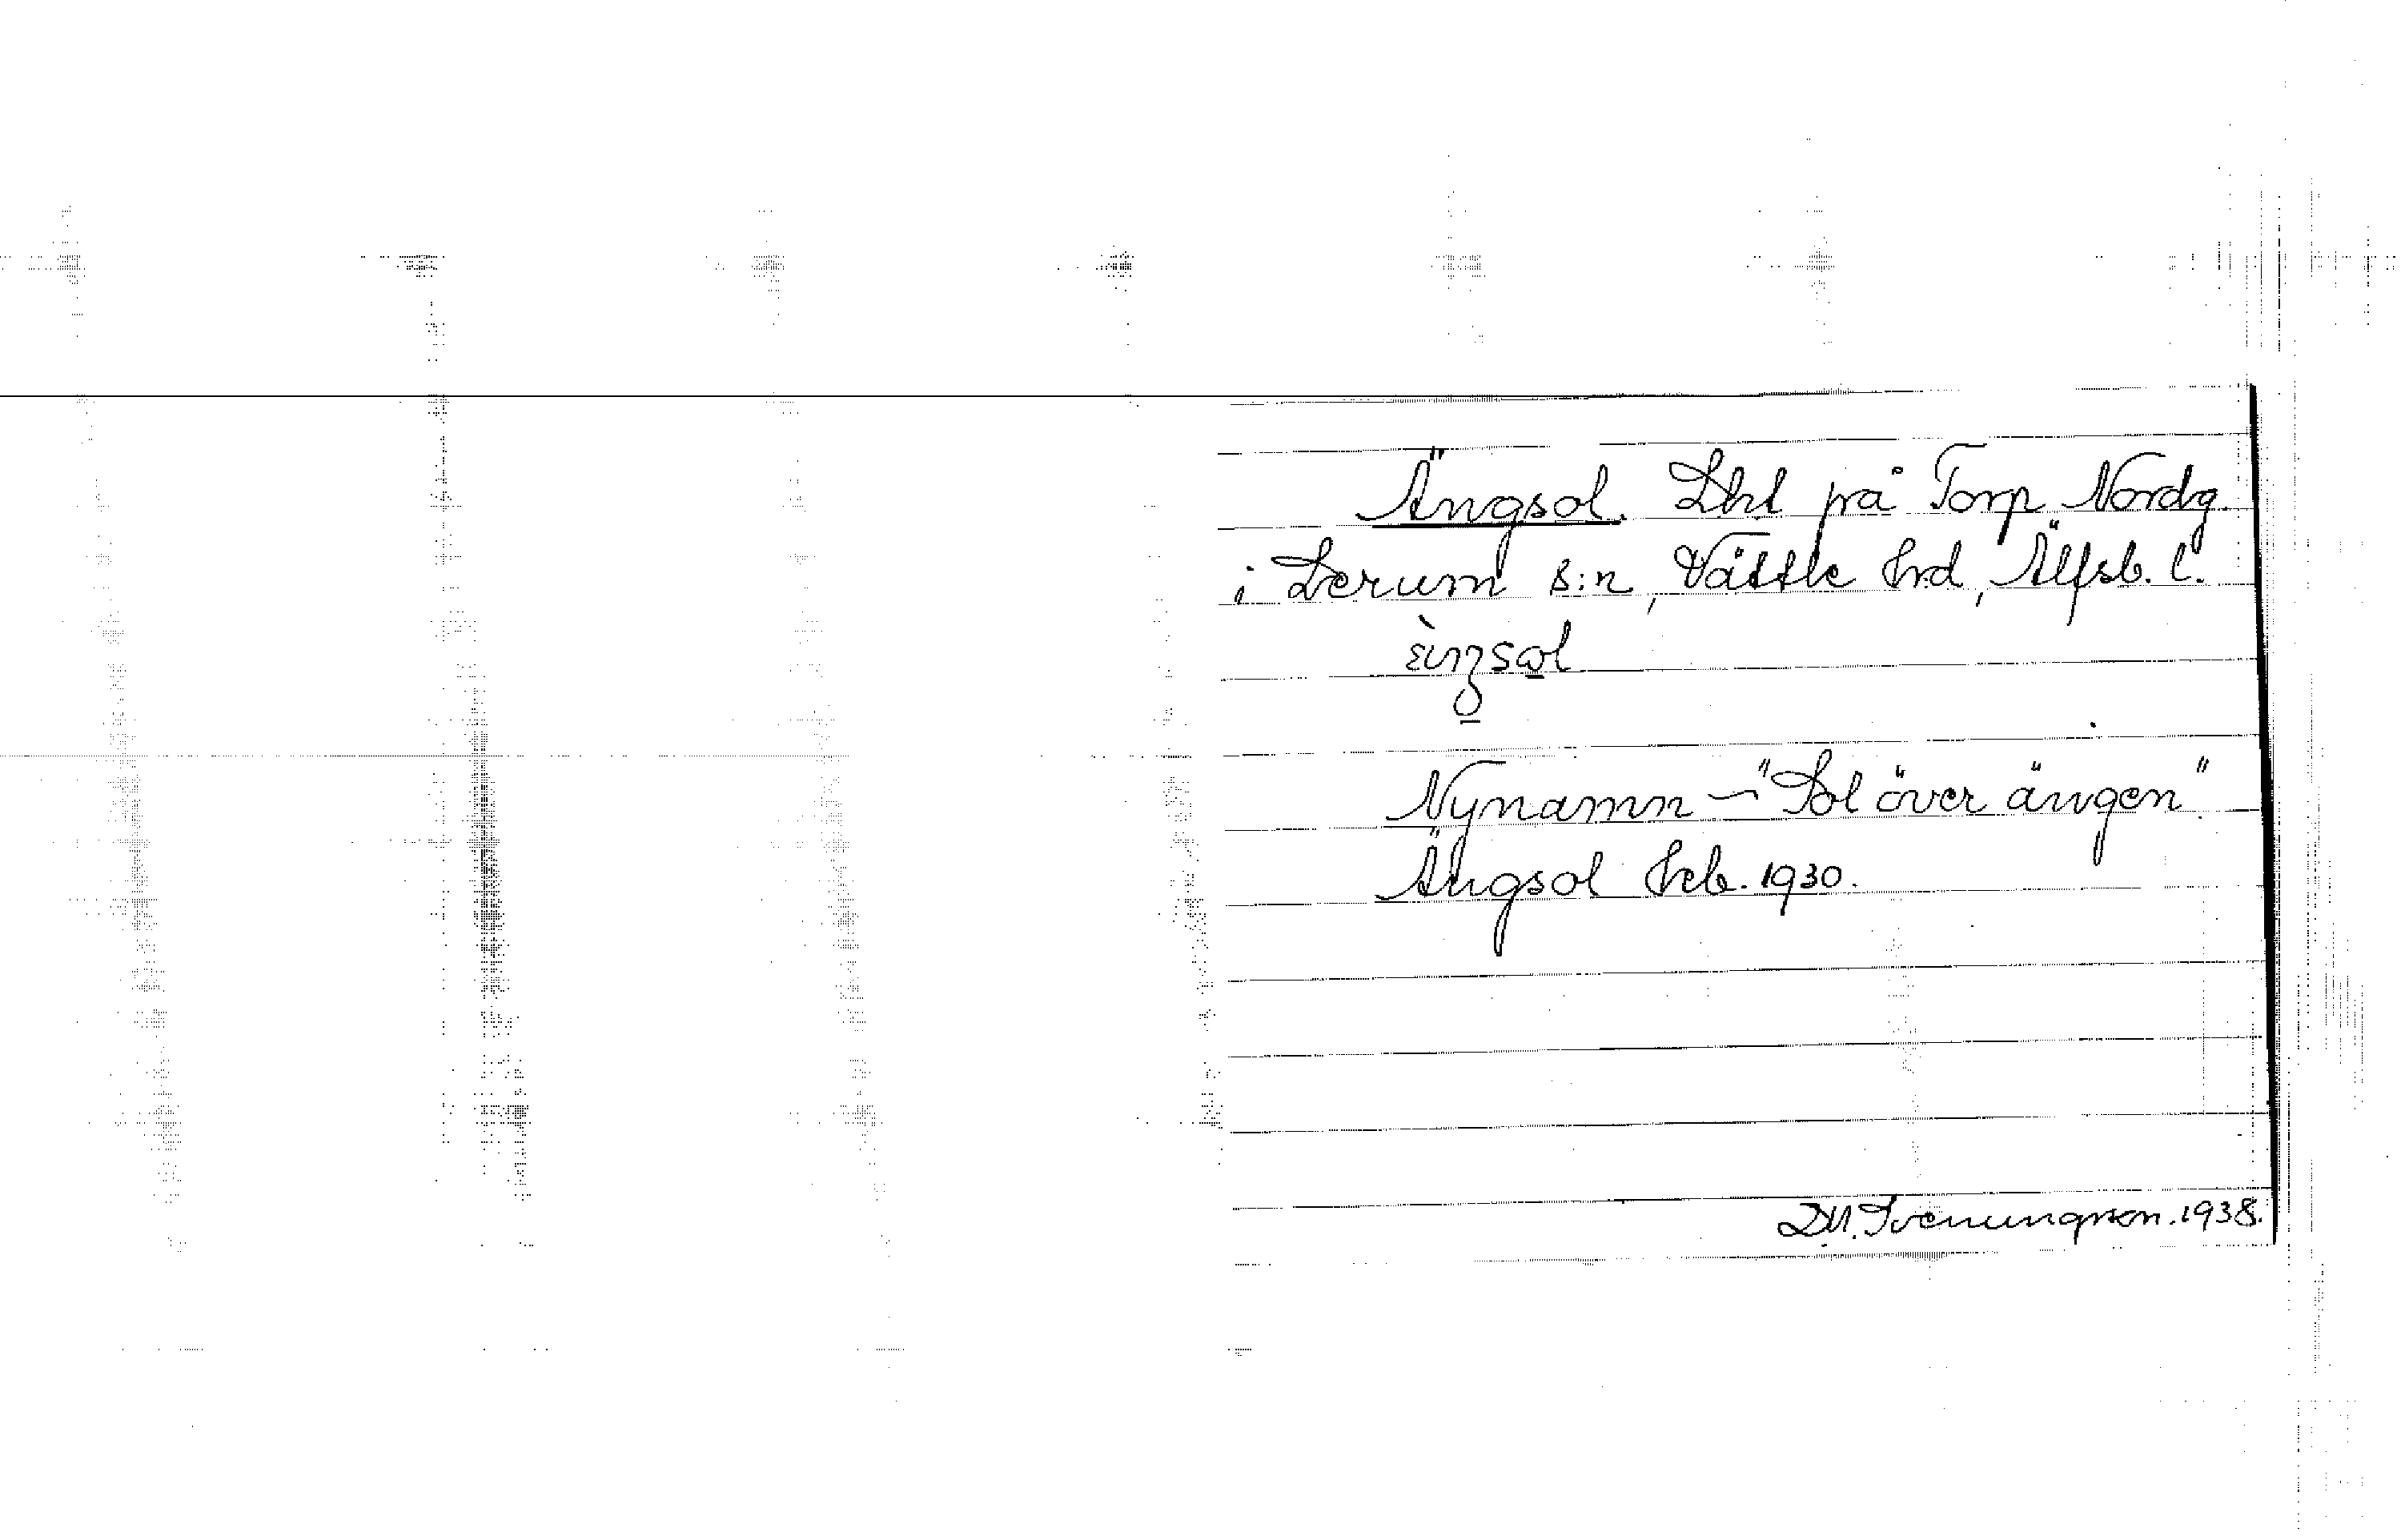 Ängsol. Lht på Torp Nordg.
i Lerum s:n, Vättle hrd, Älfsb. l.
Nynamn – "Sol över ängen"
Ängsol hcb. 1930.
D.N. Svenungsson. 1938.